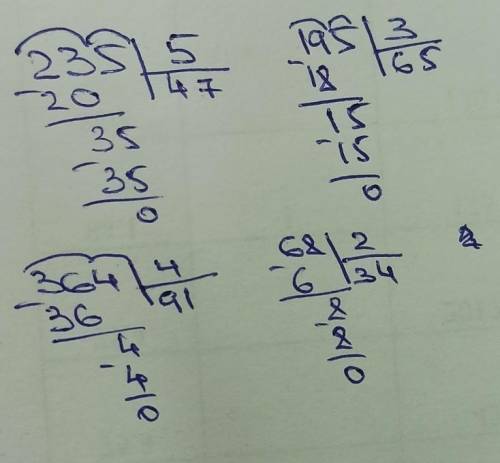 235 | 5
-20 | 47
35
-35
0
195 | 3
-18 | 65
15
-15
0
364 | 4
-36 | 91
4
-4
0
68 | 2
-6 | 34
8
-8
0